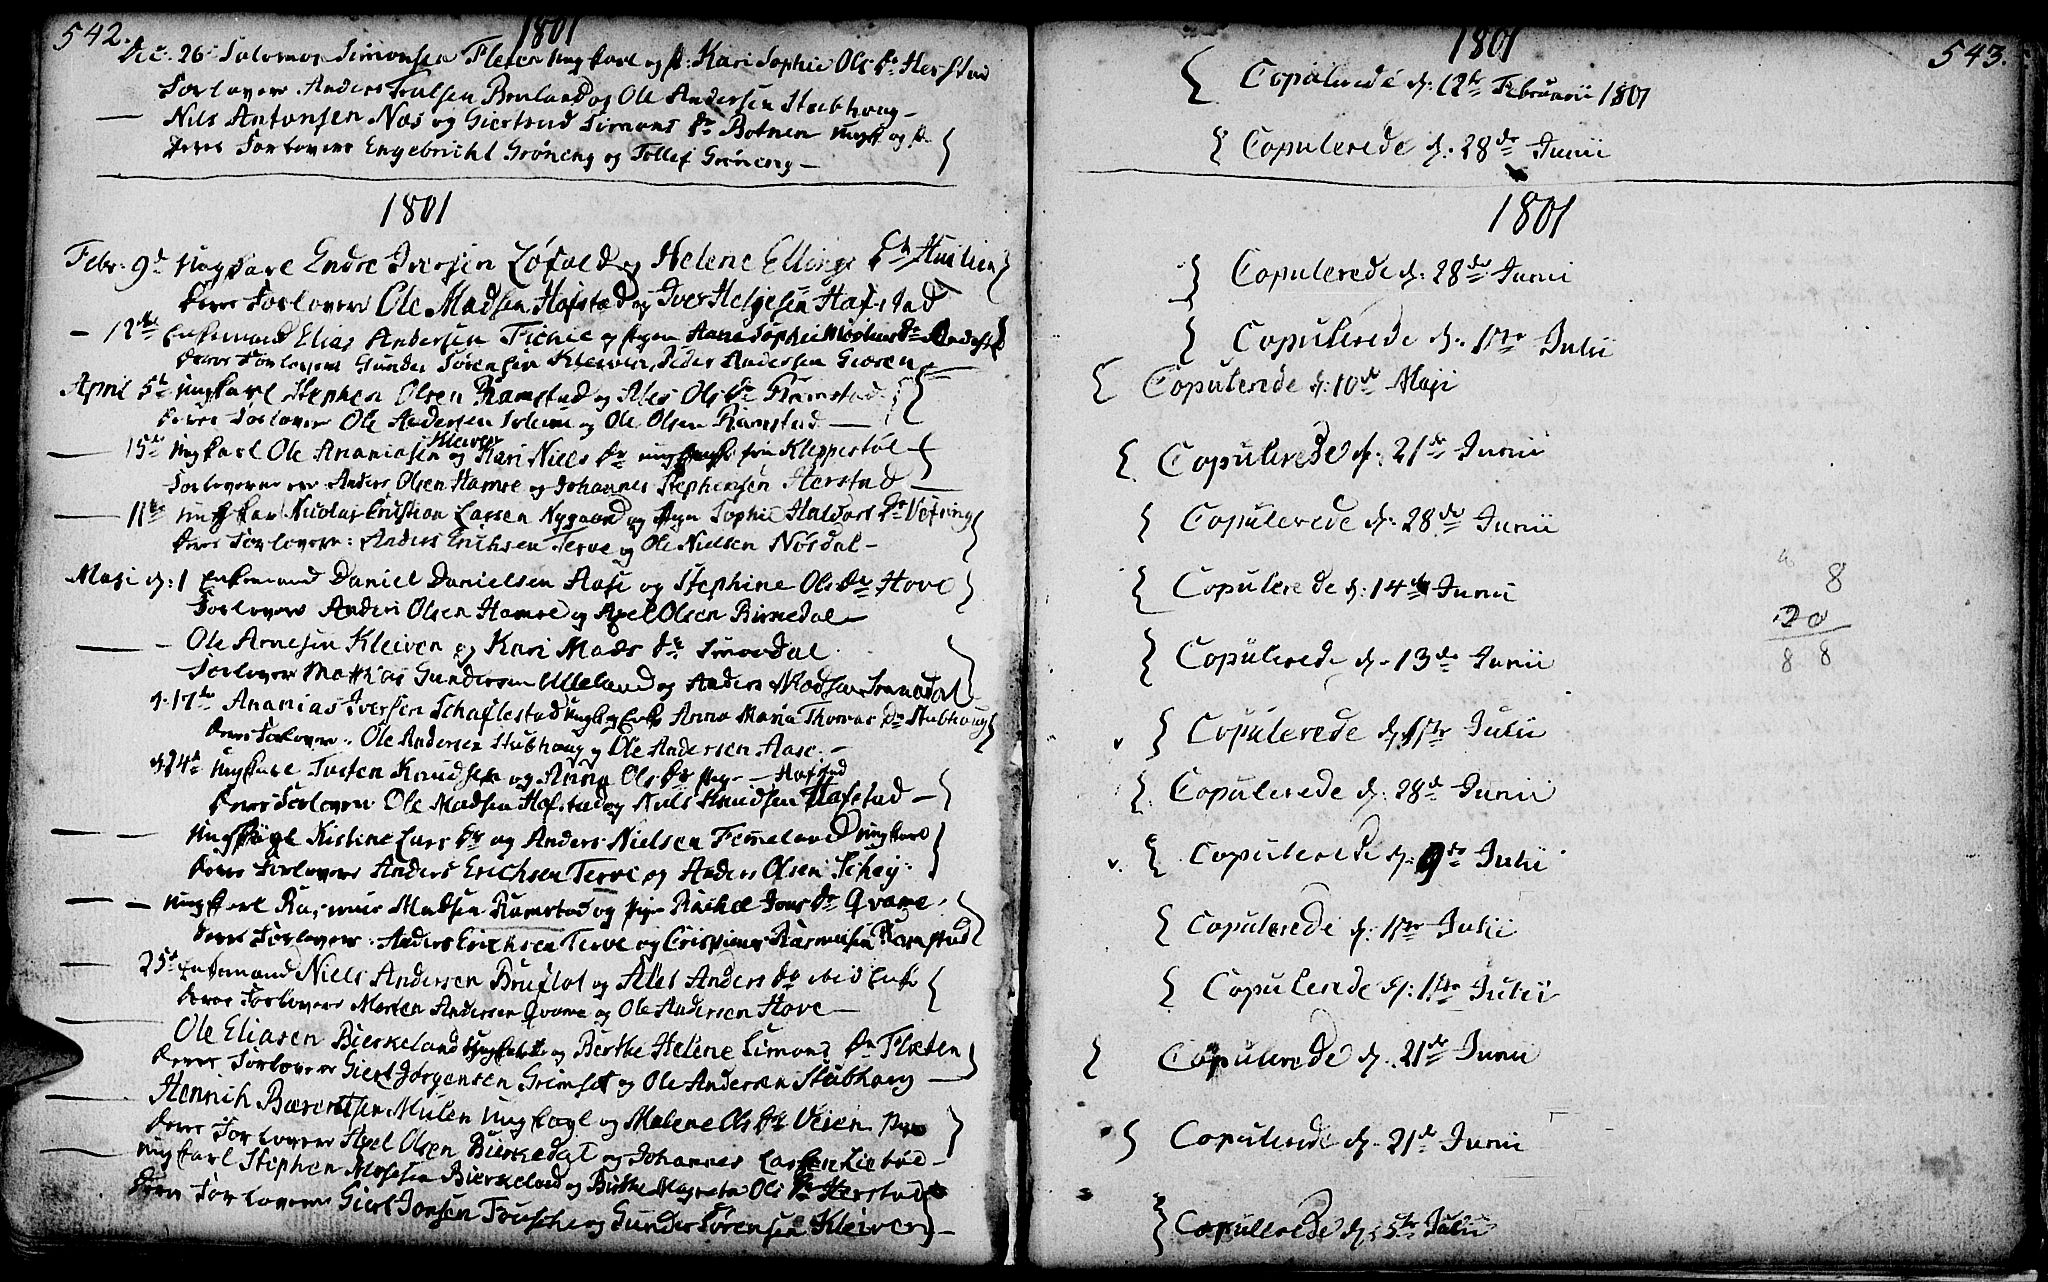 542.
1801
Dec: 26 Salomon Simonsen Fleten ungkarl og p: Kari Sophie Ols Dr Herstad
Forlovere Anders Trulsen Bruland og Ole Andersen Stubhoug
Nils Antonsen Nøs og Giertrud Simons Dr Botnen ungk og p.
deres Forlovere Engebricht Grøneng og Tollef Grøneng
1801
Febr: 9d ungkarl Endre Iversen Løfald og Helene Ellings
deres Forlovere Ole Madsen Hafstad og Iver Helgesen Hafstad
12te Enkemand Elias Andersen og Pigen Anne Sophie
deres Forlovere Gunder Sørensen Kleiven, Peder Andersen
April 5t ungkarl Stephen Olsen Ramstad og Ales Ols Dr Ramstad
deres Forlovere Ole Andersen og Ole Olsen Ramstad
15de ungkarl Ole Ananiasen Kleiven og Kari Niels Dr fra Kleppestøl
Forloverne er Anders Olsen Hamre og Johannes Stephensen Herstad
11te ungkarl Nicolay Cristian Larsen Nygaard og Pigen Sophie Haldors Dr Vefring
deres Forlovere: Anders Erichsen Terve og Ole Nielsen Nøsdal
Maji d: 1 Enkemand Daniel Danielsen Aase og Stephine Ols Dr Hove
Forlovere Anders Olsen Hamre og Axel Olsen Birkedal
Ole Arnesen Kleiven og Kari Mads Dr
Forlovere Matthias Gundersen Ulleland og Anders Madsen
d. 17de Ananias Iversen Schaflestad ungk og Enke Anna Maria Thomas Dr Stubhoug
deres Forlovere: Ole Andersen Stubhoug og Ole Andersen Aase
d. 24d ungkarl Tosten Knudsen og Anna Ols Dr Pige Hafstad
deres Forlovere Ole Madsen Hafstad og Niels Knudsen Hafstad
Kistine Lars Dr og Anders Nielsen Femeland ungkarl
deres Forlovere Anders Erichsen Terve og Anders Olsen Schey
ungkarl Rasmus Madsen Ramstad og pige Rachel Jons Dr Qvame
deres Forlovere: Anders Erichsen Terve og Cristian Rasmusen Ramstad
25d Enkemand Niels Andersen Bruflot og Ales Anders Dr
deres Forlovere Morten Andersen Qvame og Ole Andersen Hove
Ole Eliasen Bierkeland ungkarl og Birthe Helene Simons Dr Fleten
deres Forlovere Giert Jørgensen Grimset og Ole Andersen Stubhoug
Hennich Bærentsen Mulen ungkarl og Malene Ols Dr Veien Pige
deres Forlovere Axel Olsen Birkedal og Johannes Larsen
ungkarl Stephen Mosesen Bierkeland og Birthe Magreta Ols Dr Herstad
deres Forlovere Giert Jonsen og Gunder Sørensen Kleiven
1801
543.
Copulerede d. 12te Februarii 1801
Copulerede d. 28de Junii
1801
Copulerede d. 28de Junii
Copulerede d. 1ste Julii
Copulerede d. 10de Maji
Copulerede d. 21de Junii
Copulerede d. 28de Junii
Copulerede d. 14de Junii
8
20
8 8
Copulerede d. 13de Junii
Copulerede d. 1ste Julii
Copulerede d. 28de Junii
Copulerede d. 9de Julii
Copulerede d. 1ste Julii
Copulerede d. 1ste Julii
Copulerede d. 21de Junii
Copulerede d. 21de Junii
Copulerede d. 5te Julii